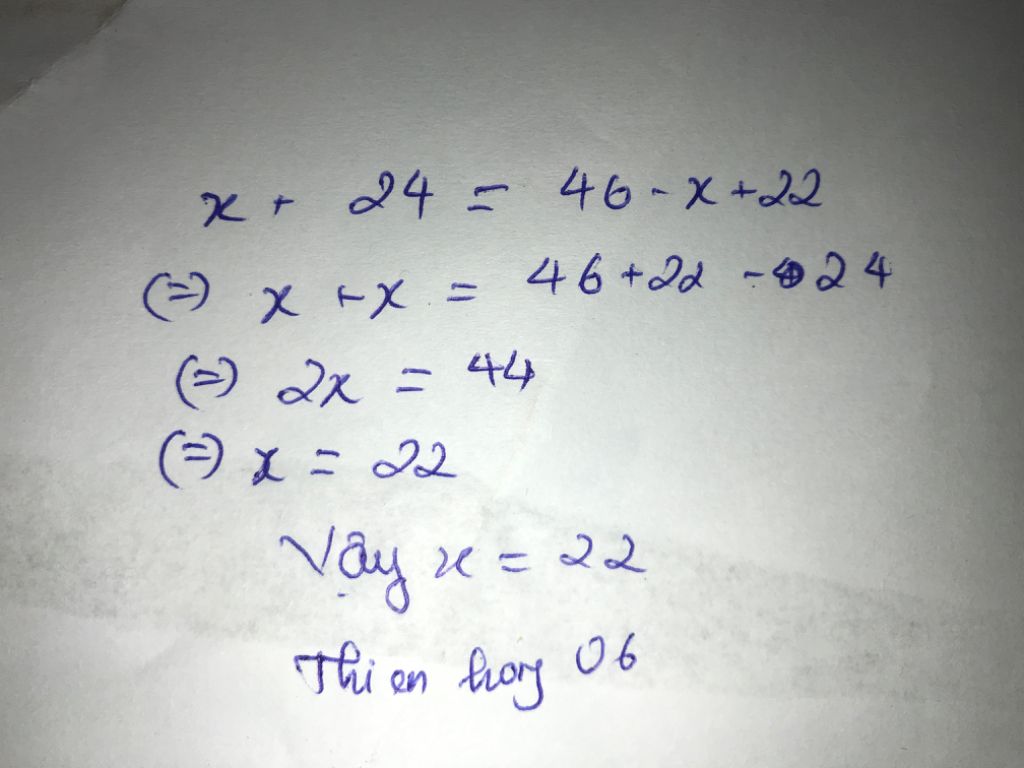 x + 24 = 46 - x + 22
(=) x + x = 46 + 22 - 24
(=) 2x = 44
(=) x = 22
Vậy x = 22
Thien 06